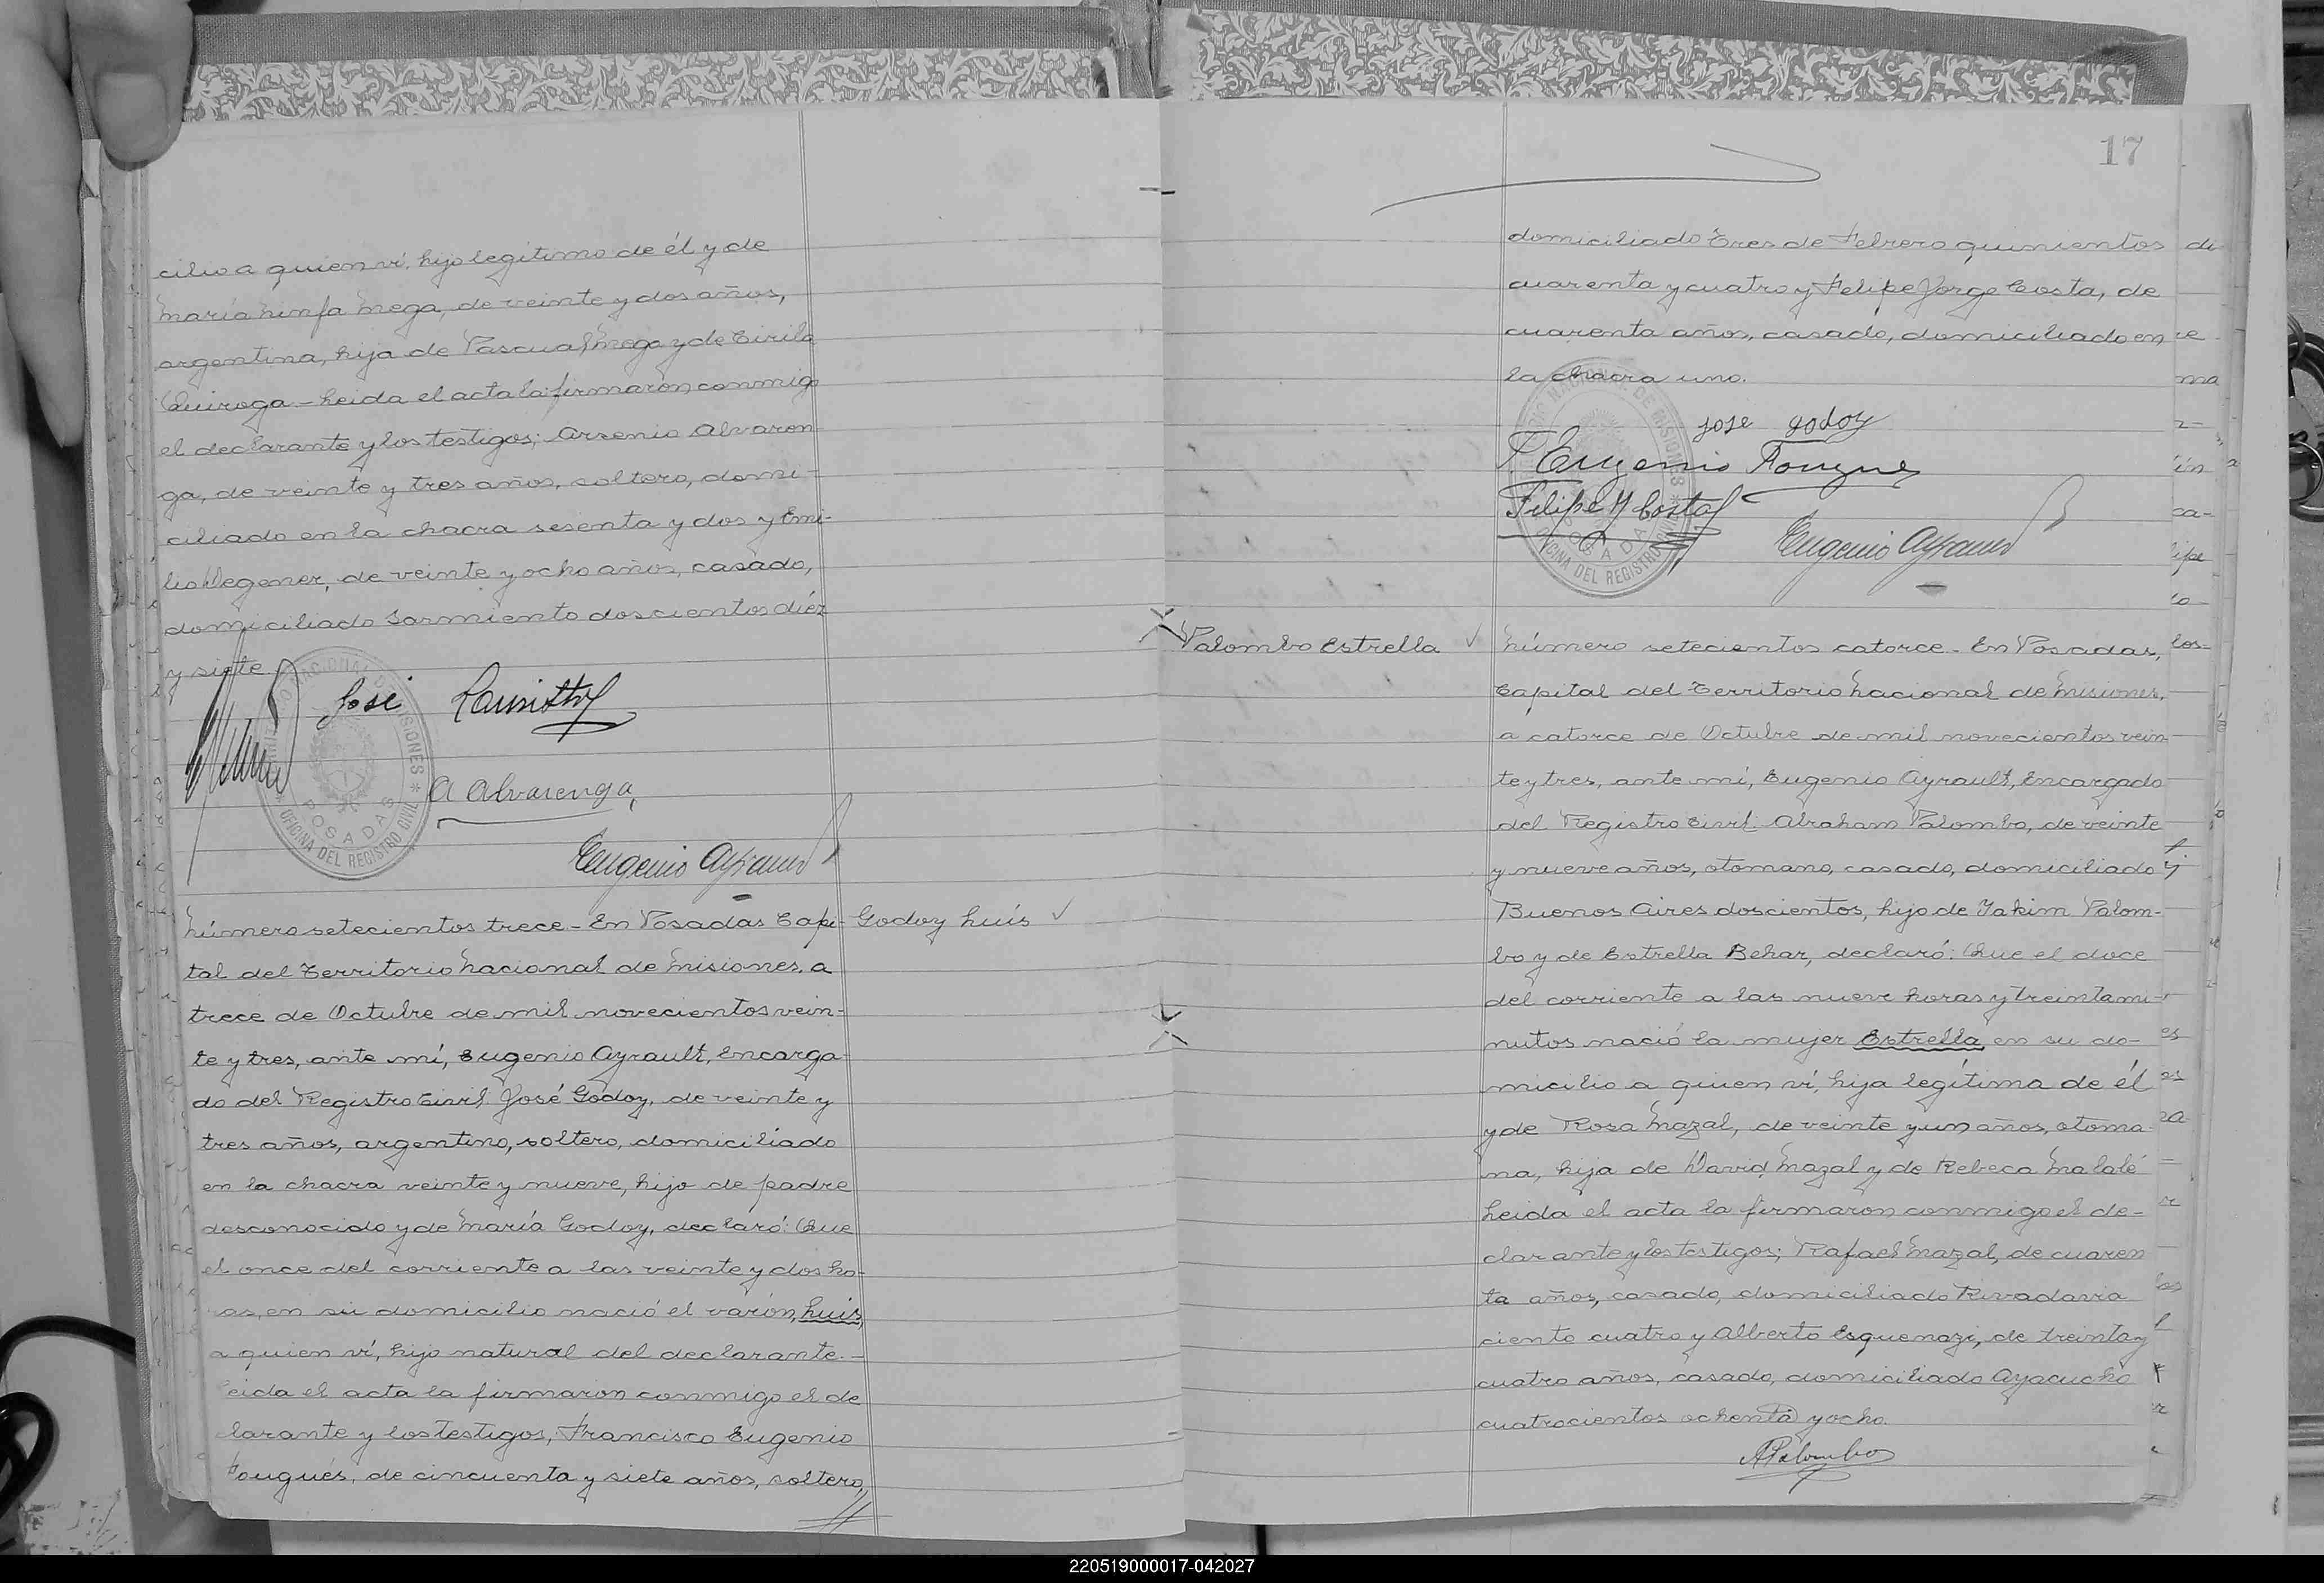 cilio a quien ví, hijo legítimo de él y de
María Ninfa Mega, de veinte y dos años,
argentina, hija de Pascual Mega y de Cirila
Quiroga.- Leida el acta la firmaron conmigo
el declarante y los testigos; Arsenio Alvaren
ga, de veinte y tres años, soltero, domi-
ciliado en la chacra sesenta y dos y Emi-
lio Wegener, de veinte y ocho años, casado,
domiciliado Sarmiento doscientos diéz
y siete
José
A Alvarenga
Eugenio Ayrault
TERRITORIO NACIONAL DE MISIONES * OFICINA DEL REGISTRO CIVIL *
POSADAS
Godoy Luis
Número setecientos trece - En Posadas Capi-
tal del Territorio Nacional de Misiones, a
trece de Octubre de mil novecientos vein-
te y tres, ante mí, Eugenio Ayrault, Encarga-
do del Registro Civil José Godoy, de veinte y
tres años, argentino, soltero, domiciliado
en la chacra veinte y nueve, hijo de padre
desconocido y de María Godoy, declaró: Que
el once del corriente a las veinte y dos ho-
ras, en su domicilio nació el varón, Luis,
a quien ví, hijo natural del declarante.-
Leida el acta la firmaron conmigo el de
clarante y los testigos, Francisco Eugenio
Fougués, de cincuenta y siete años, soltero,
17
domiciliado Tres de Febrero quinientos
cuarenta y cuatro y Felipe Jorge Costa, de
cuarenta años, casado, domiciliado en
la chacra uno.
jose godoy
F. Eugenio Fougues
Felipe J Costa
Eugenio Ayrault
TERRITORIO NACIONAL DE MISIONES * OFICINA DEL REGISTRO CIVIL *
POSADAS
Palombo Estrella
Número setecientos catorce - En Posadas,
Capital del Territorio Nacional de Misiones,
a catorce de Octubre de mil novecientos vein
te y tres, ante mí, Eugenio Ayrault, Encargado
del Registro Civil Abraham Palombo, de veinte
y nueve años, otomano, casado, domiciliado
Buenos Aires doscientos, hijo de Yakim Palom-
bo y de Estrella Behar, declaró: Que el doce
del corriente a las nueve horas y treinta mi-
nutos nació la mujer Estrella, en su do-
micilio a quien ví, hija legítima de él
y de Rosa Mazal, de veinte y un años, otoma-
na, hija de David Mazal y de Rebeca Malalé
Leida el acta la firmaron conmigo el de-
clarante y los testigos; Rafael Mazal, de cuaren
ta años, casado, domiciliado Rivadavia
ciento cuatro y Alberto Esquenazi, de treinta y
cuatro años, casado, domiciliado Ayacucho
cuatrocientos ochenta y ocho.
A Palombo
220519000017-042027